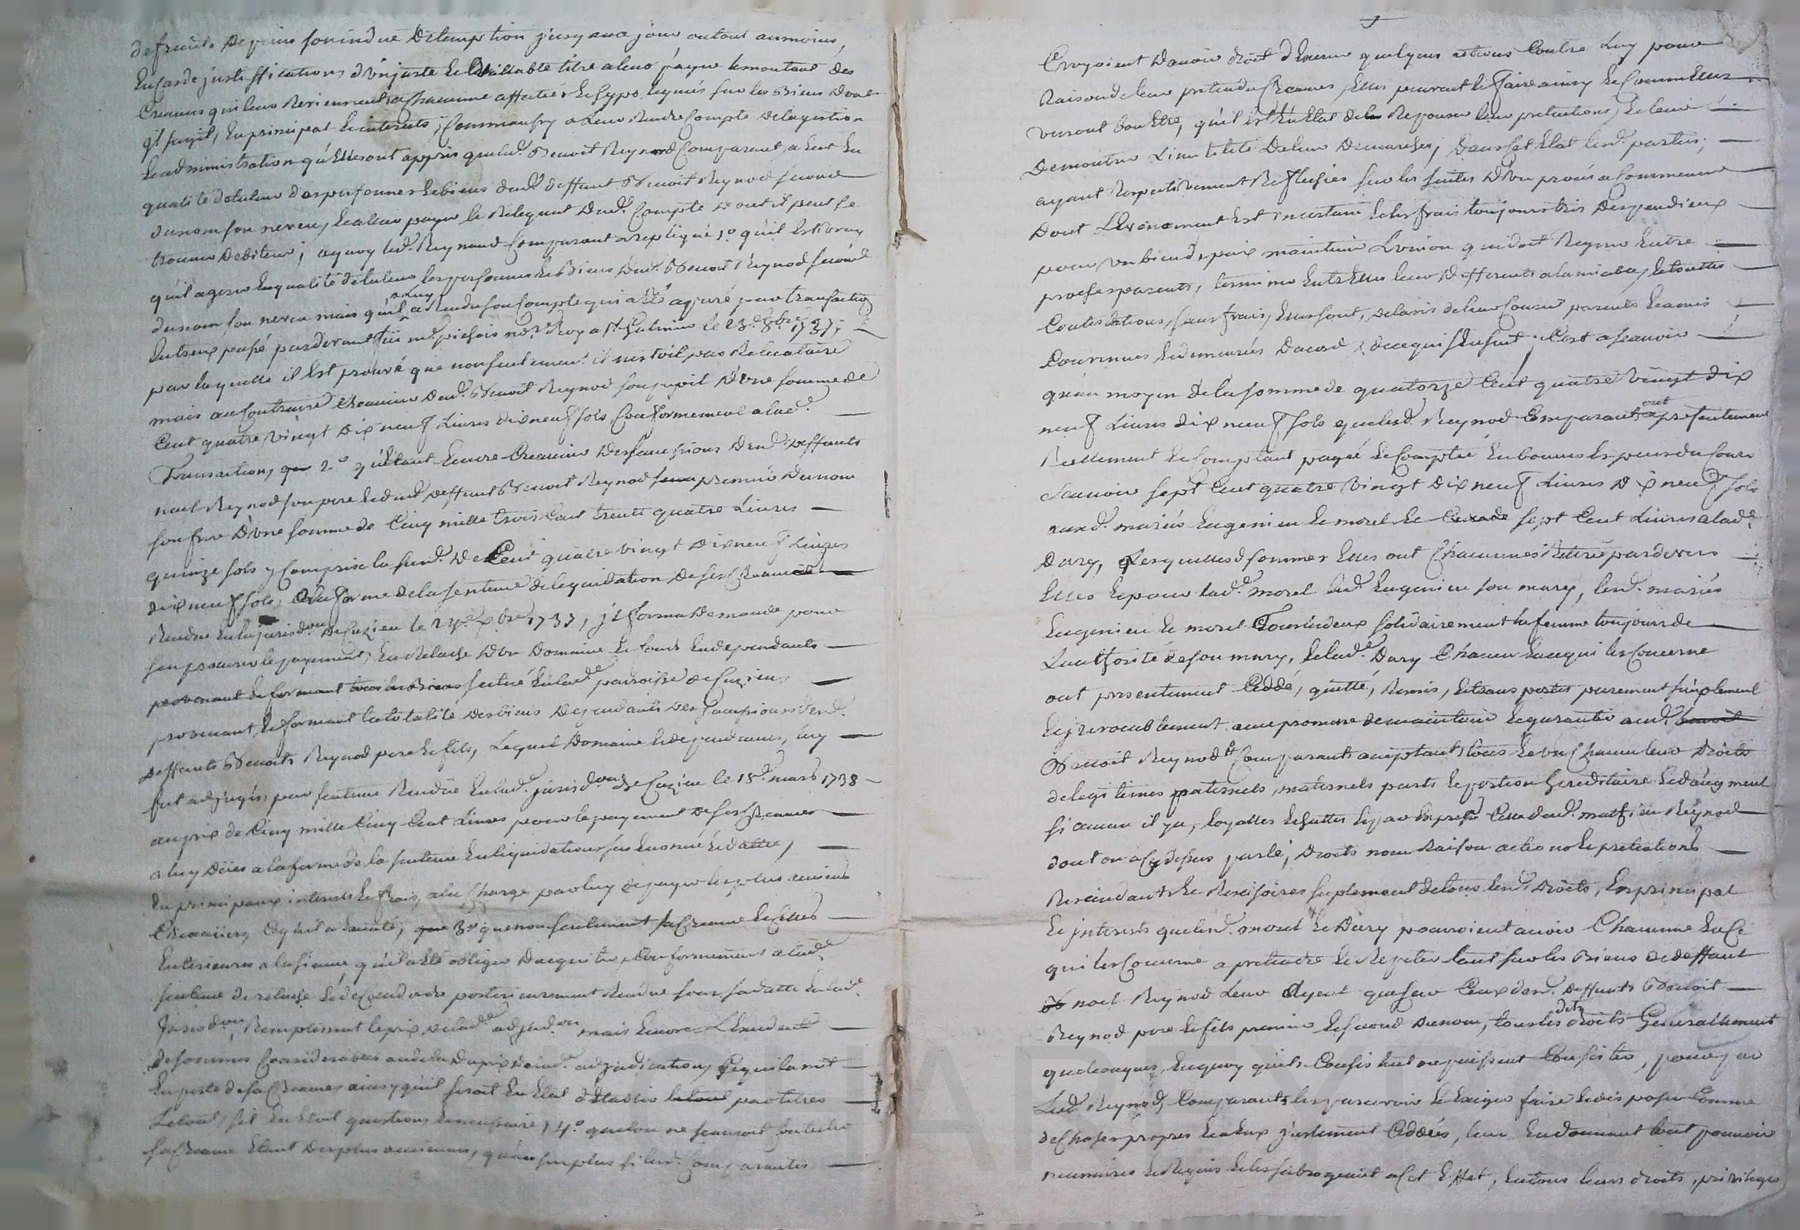 de fruits depuis son indue detemption jusques a ce jour ou tout au moins
En cas de justiffications d'un juste et Vallable titre a leur payer le montant des
Creances qui leur Reviennent a Chacune affectées et hypotequées sur les Biens dont
il s'agit, En principal et interests, Comm'aussy a leur Rendre Compte de la gestion
et administration qu'elles ont appris que led. Benoit Reynod Comparant, a eut En
qualité de tuteur des personnes et biens dud. deffunt Benoit Reynod second
du nom son neveu, et a leur payer le Reliquat dud. Compte dont il peut se
trouver Debiteur; a quoy led. Reynod Comparant a repliqué 1.o qu'il est vray
qu'il a geré En qualité de tuteur les personnes et Biens dud. Benoit Reynod second
du nom son neveu mais qu'il a Rendu son Compte qui a été apuré par transaction
Entreux passé pardevant no.re Roy a S.t Galmier le 23.e 8bre 1737;
par laquelle il Est prouvé que non seulement il n'estoit pas Reliquataire
mais au Contraire Creancier dud. Benoit Reynod son pupil D'une somme de
Cent quatre Vingt Dix neuf Livres dix neuf sols Conformement a lad.
Transaction, 2.o qu'étant Encore Creancier des successions desd. deffunts
noel Reynod son pere et dud. deffunt Benoit Reynod premier du nom
son frere D'une somme de Cinq mille trois Cent trente quatre Livres
quinze sols y Compris la susd. De Cent quatre Vingt Dix neuf Livres
dix neuf sols, a la forme de la sentence de liquidation de ses Creances
Rendue En la jurisd.on de Cuzieu le 24.e Xbre 1737, il forma Demande pour
s'en procurer le payement, En Relache D'un Domaine et fonds En dependants
provenant et formant tous les Biens scitué En lad. parroisse de Cuzieu,
provenant, et formant la totalité des biens Dependants des successions desd.
deffunts Benoits Reynod pere et fils, Lequel Domaine et dependances, luy
fut adjugé, par sentence Rendue En lad. jurisd.on de Cuzieu le 18.e mars 1738
au prix de Cinq mille Cinq Cent Livres pour le payement de ses Creances
a luy Deües a la forme de la sentence En liquidation sus Enoncée Et dattée,
En principaux interests et frais, a la Charge par luy de payer les plus anciens
Creanciers, Ce qu'il a Executé, 3.o que non seulement sa Creance et Celles
Enterieures a la sienne qu'il a été obligé D'acquiter, Conformement a lad.
sentence de relache et de posterieurement Rendue sous sa datte En lad.
Jurisd.on Remplissent le prix de lad. adjud.on mais Encore Excedent
de sommes Considerables au dela du prix de lad. adjudication, Ce qui le met
En perte de sa Creance, ainsy qu'il seroit En Etat d'Etablir par titres
Le tout, s'il En Etoit question, 4.o que l'on ne scauroit
sa Creance Etant Des plus anciennes, qu'au surplus si lesd. Comparantes
Croyoient D'avoir droit d'Exercer quelques actions Contre Luy pour
Raison de leur pretendues Creances, Elles peuvent le faire ainsy et Comm'elles
verront bon Etre, qu'il est En Etat de Repousser leur pretentions, et leur
Demontrer L'inutilité De leur Demarches; Dans Cet Etat lesd. parties;
ayant Respectivement Reflechies sur les suites D'un procés a Commencer
Dont L'Evenement est incertain et les frais toujours tres Dispendieux
pour un bien de paix maintenir L'union qui doit Regner Entre
proches parents, terminer Entr'Elles leur Differents a l'amiable, et toutes
Contestations, sans frais, Elles sont, de l'avis de leur Conseil parents et amis
Convenues et demeurées d'acord, de ce qui s'Ensuit, C'est a scavoir
qu'au moyen de la somme de quatorze Cent quatre Vingt Dix
neuf Livres Dix neuf sols que led. Reynod Comparant a presentement
Reellement Et Comptant payé et Compté En bonnes Especes du Cours
scavoir sept Cent quatre Vingt Dix neuf Livres Dix neuf sols
auxd. mariés Eugenieu et morel et sept Cent Livres a lad.
Dury, Lesquelles sommes Elles ont Chacunes Retiré pardevers
Elles Et pour lad. morel led. Eugenieu son mary, lesd. mariés
Eugenieu et morel Tous deux solidairement la femme toujours de
L'authorité de son mary, et lad. Dury Chacun En ce qui les Concerne
ont presentement Ceddé, quitté, Remis, et transportés purement simplement
et irrevocablement avec promesse de maintenir Et garantir aud.
Benoit Reynod Comparant acceptant, tous et un Chacun leur Droits
de legitimes paternels, maternels parts et portion hereditaire et d'augment
si aucun il y a, Loyalles Echuttes Et par Exprès Celle dud. mathieu Reynod
dont on a Cy dessus parlé, Droits noms Raison action et pretentions
Rescindants et Rescisoires suplement de tous lesd. Droits, En principal
Et interests que lesd. morel et Dury pourroient avoir Chacune En Ce
qui les Concerne a pretendre et Repeter tant sur les Biens dud. deffunt
noel Reynod Leur Ayeul que sur Ceux desd. deffunts Benoit
Reynod pere et fils premier et second du nom, tous lesdits droits Generallement
quelconques, En quoy qu'ils Consistent ou puissent Consister, pour par
Led. Reynod Comparant les percevoir et Exiger faire et disposer Comme
de Choses propres et a Eux justement Ceddées, leur En donnant tout pouvoir
necessaires et Requis et les subrogeant a Cet Effet, En tous leurs droits, privileges